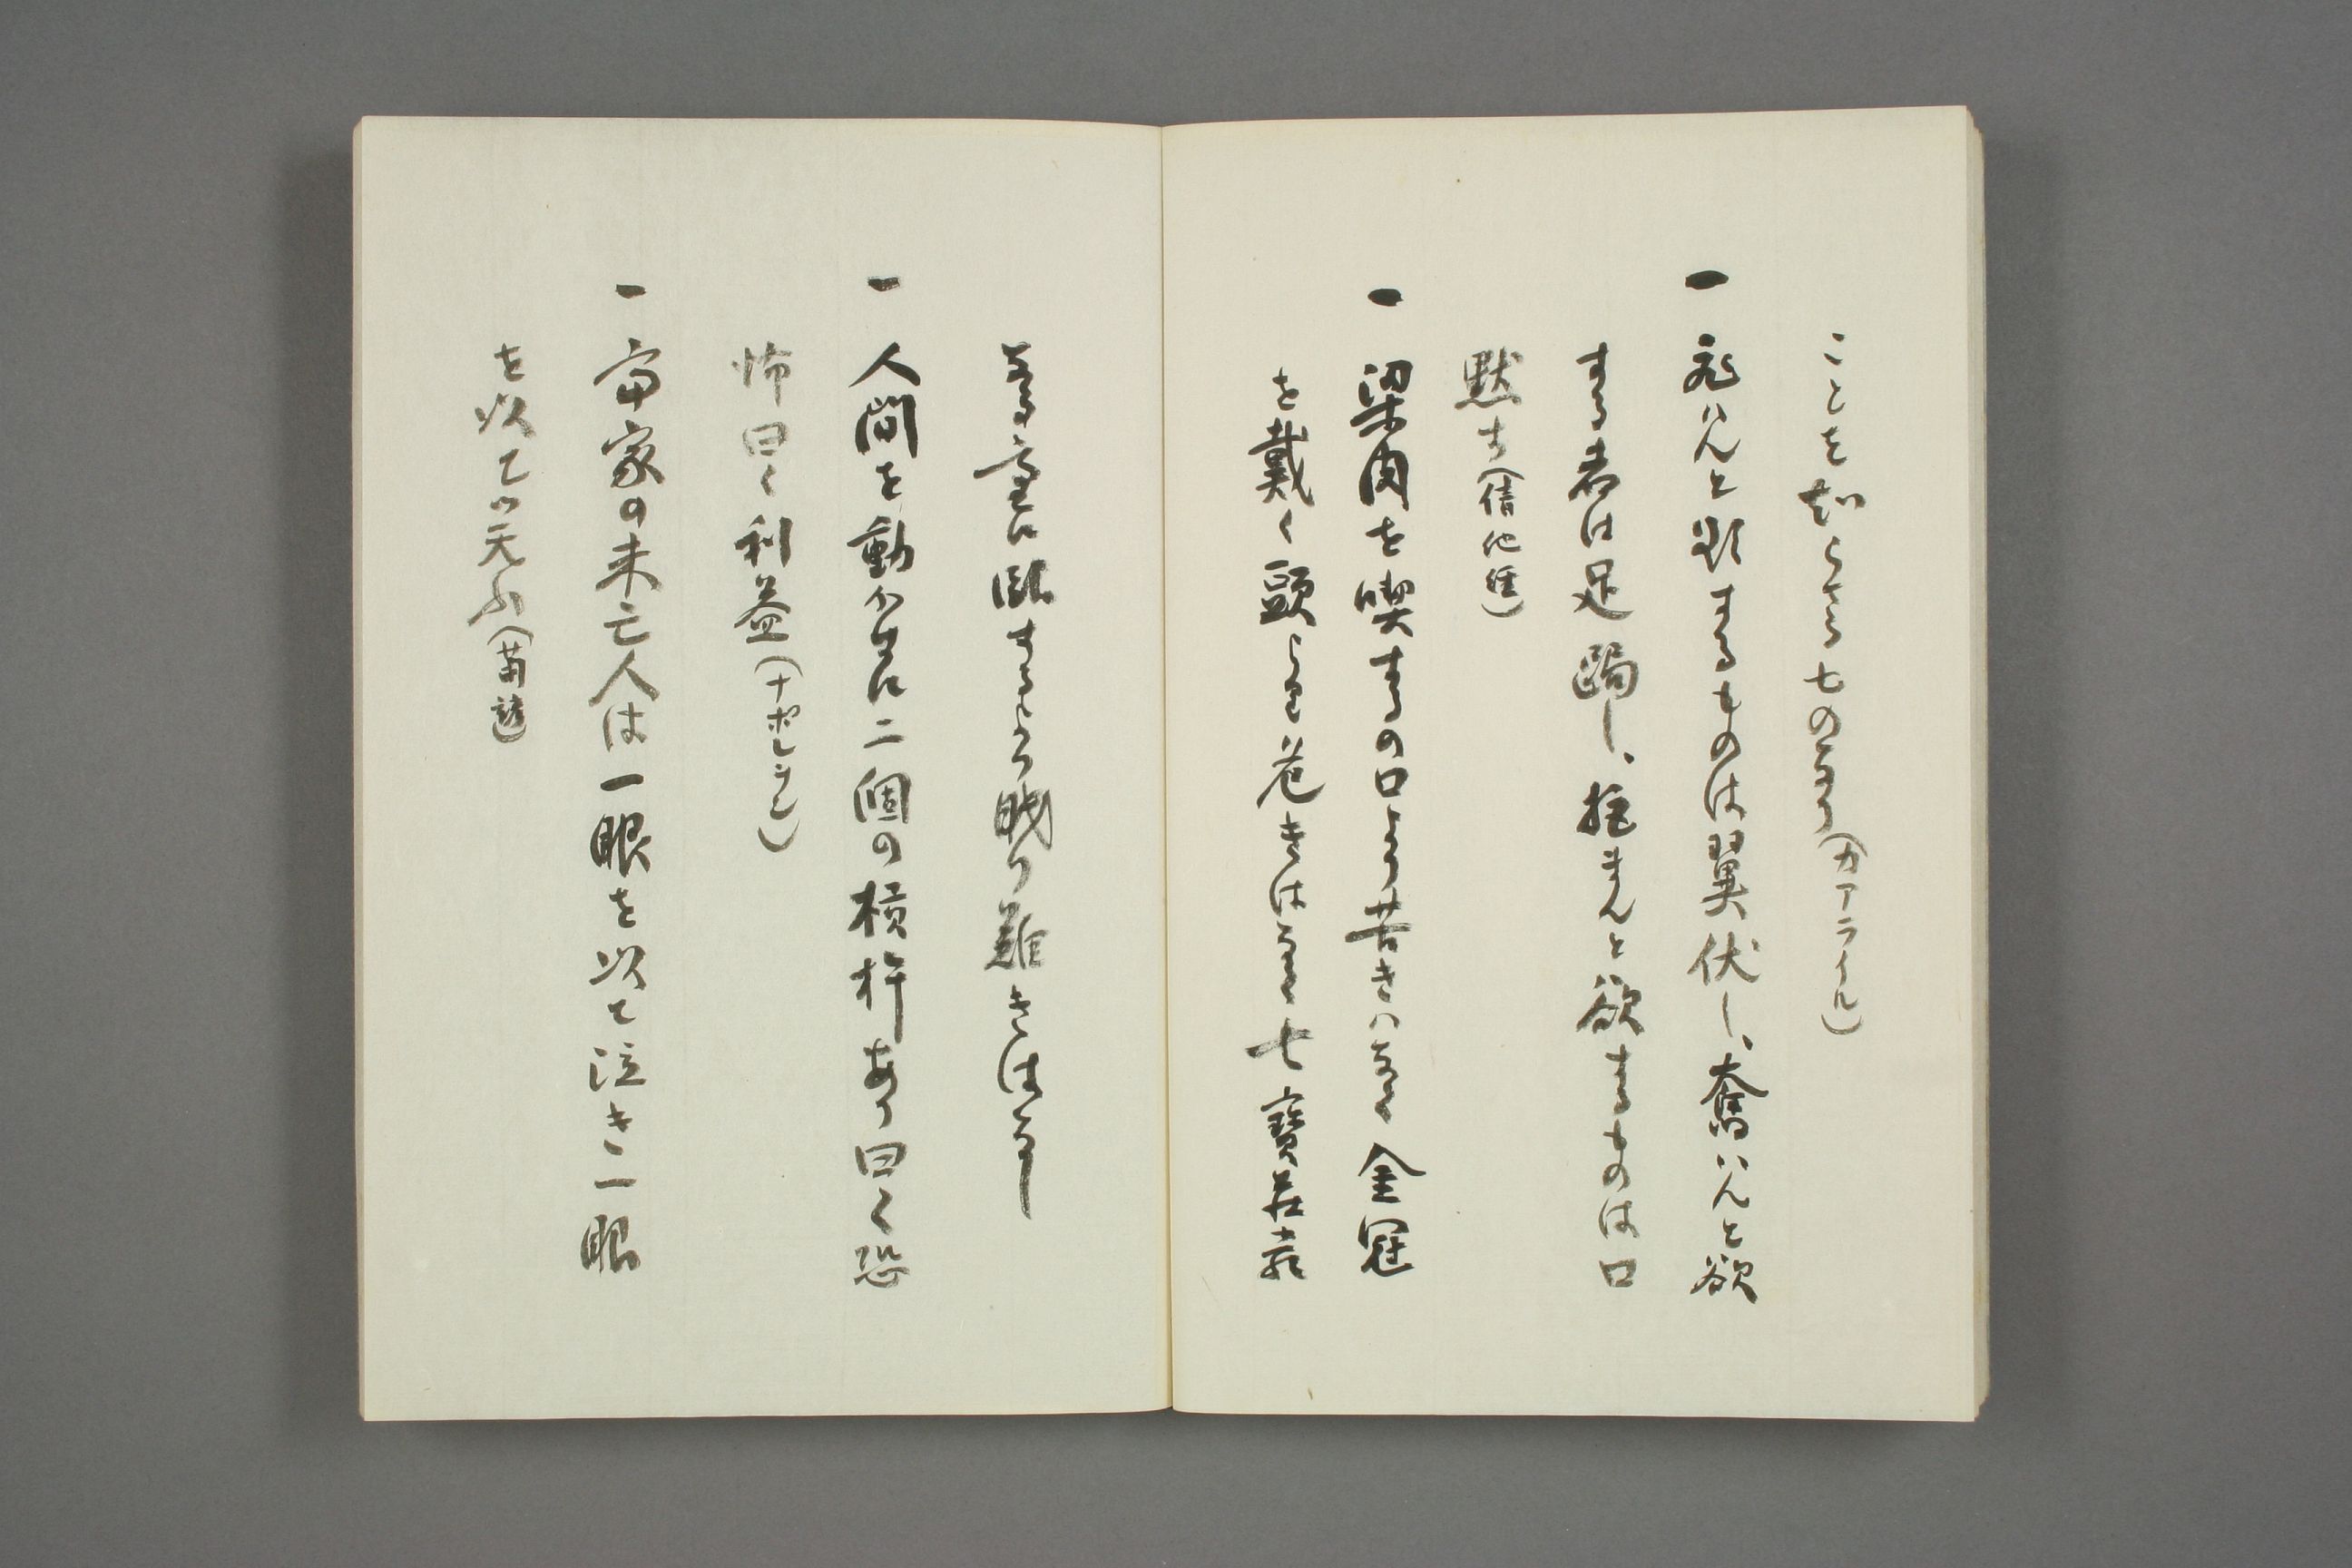 ことを知らざるものなり(カアライル)
一 飛はんと欲するものは翼伏し、奮はんと欲
する者は足跼し、まんと欲するものは口
黙す
一 梁肉を喫するの口より苦きハなく金冠
を戴く頭より危きはなく七寳荘厳
臺に臥するより眠り難きはなし
一 人間を動かすに二個の槓杆あり曰く恐
怖曰く利益(ナポレヲン)
一 富家の未亡人は一眼を以て泣き一眼
を以てハ笑ふ(葡諺)